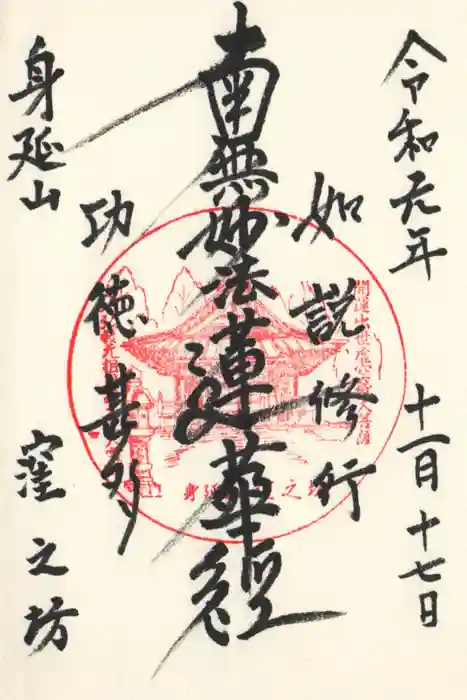 令和元年 十一月十七日
如説修行
南無妙法蓮華経
功徳甚多
身延山 窪之坊